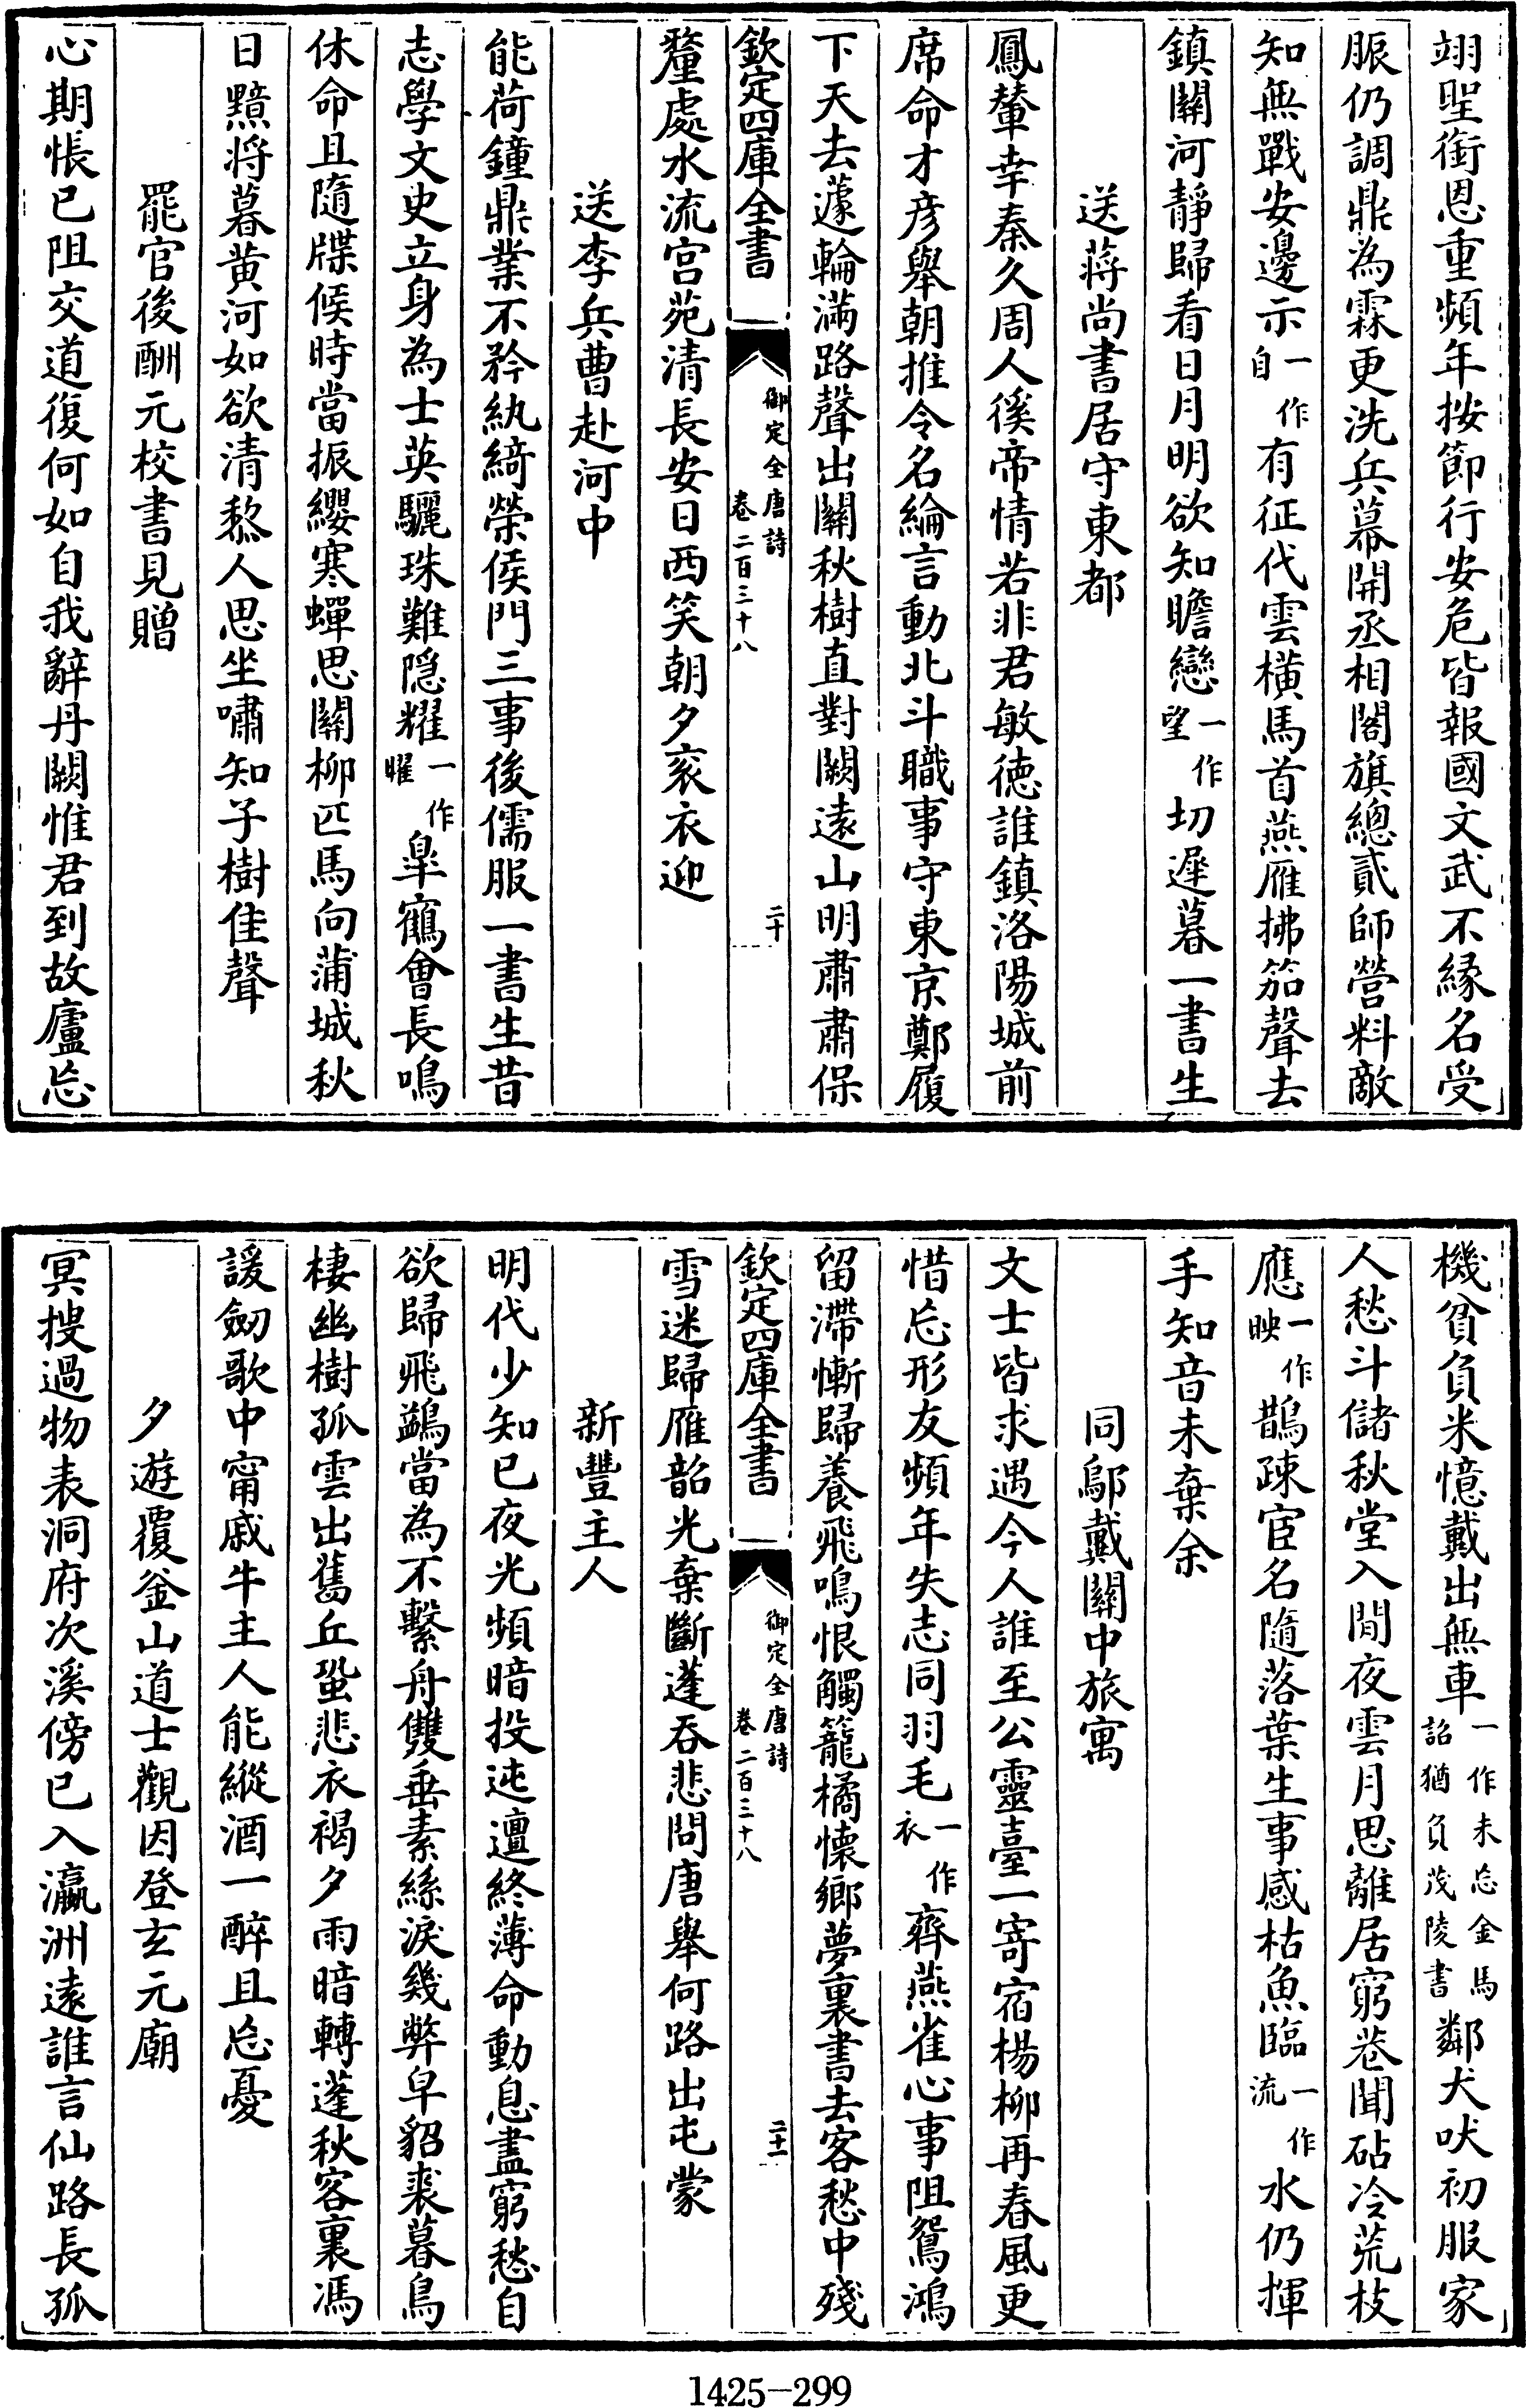 翊聖銜恩重頻年按節行安危皆報國文武不緣名受
脤仍調鼎為霖更洗兵幕開丞相閤旗總貳師營料敵
知無戰安邊示一作自有征代雲横馬首燕雁拂笳聲去
鎮關河靜歸看日月明欲知瞻戀一作望切遲暮一書生
送蔣尚書居守東都
鳳輦幸秦久周人徯帝情若非君敏德誰鎮洛陽城前
席命才彦舉朝推令名綸言動北斗職事守東京鄭履
下天去蘧輪滿路聲出關秋樹直對闕逺山明肅肅保
欽定四庫全書
御定全唐詩
卷二百三十八
二十
釐處水流宫苑清長安日西笑朝夕衮衣迎
送李兵曹赴河中
能荷鐘鼎業不矜紈綺榮侯門三事後儒服一書生昔
志學文史立身為士英驪珠難隠耀一作曜臯鶴會長鳴
休命且隨牒候時當振纓寒蟬思關柳匹馬向蒲城秋
日黯將暮黄河如欲清黎人思坐嘯知子樹佳聲
罷官後酬元校書見贈
心期悵已阻交道復何如自我辭丹闕惟君到故廬忘
機貧負米憶戴出無車一作未忘金馬詔猶負茂陵書鄰犬吠初服家
人愁斗儲秋堂入閒夜雲月思離居窮巷聞砧冷荒枝
應一作映鵲疎宦名隨落葉生事感枯魚臨一作流水仍揮
手知音未棄余
同鄔戴關中旅寓
文士皆求遇今人誰至公靈臺一寄宿楊柳再春風更
惜忘形友頻年失志同羽毛一作衣齊燕雀心事阻鴛鴻
留滯慚歸養飛鳴恨觸籠橘懷鄉夢裏書去客愁中殘
欽定四庫全書
御定全唐詩
卷二百三十八
二十一
雪迷歸雁韶光棄斷蓬吞悲問唐舉何路出屯蒙
新豐主人
明代少知已夜光頻暗投迍邅終薄命動息盡窮愁自
欲歸飛鷁當為不繫舟雙垂素絲淚幾弊皁貂裘暮鳥
棲幽樹孤雲出舊丘蛩悲衣褐夕雨暗轉蓬秋客裏馮
諼劒歌中甯戚牛主人能縱酒一醉且忘憂
夕遊覆釜山道士觀因登玄元廟
冥搜過物表洞府次溪傍已入瀛洲逺誰言仙路長孤
1425-299